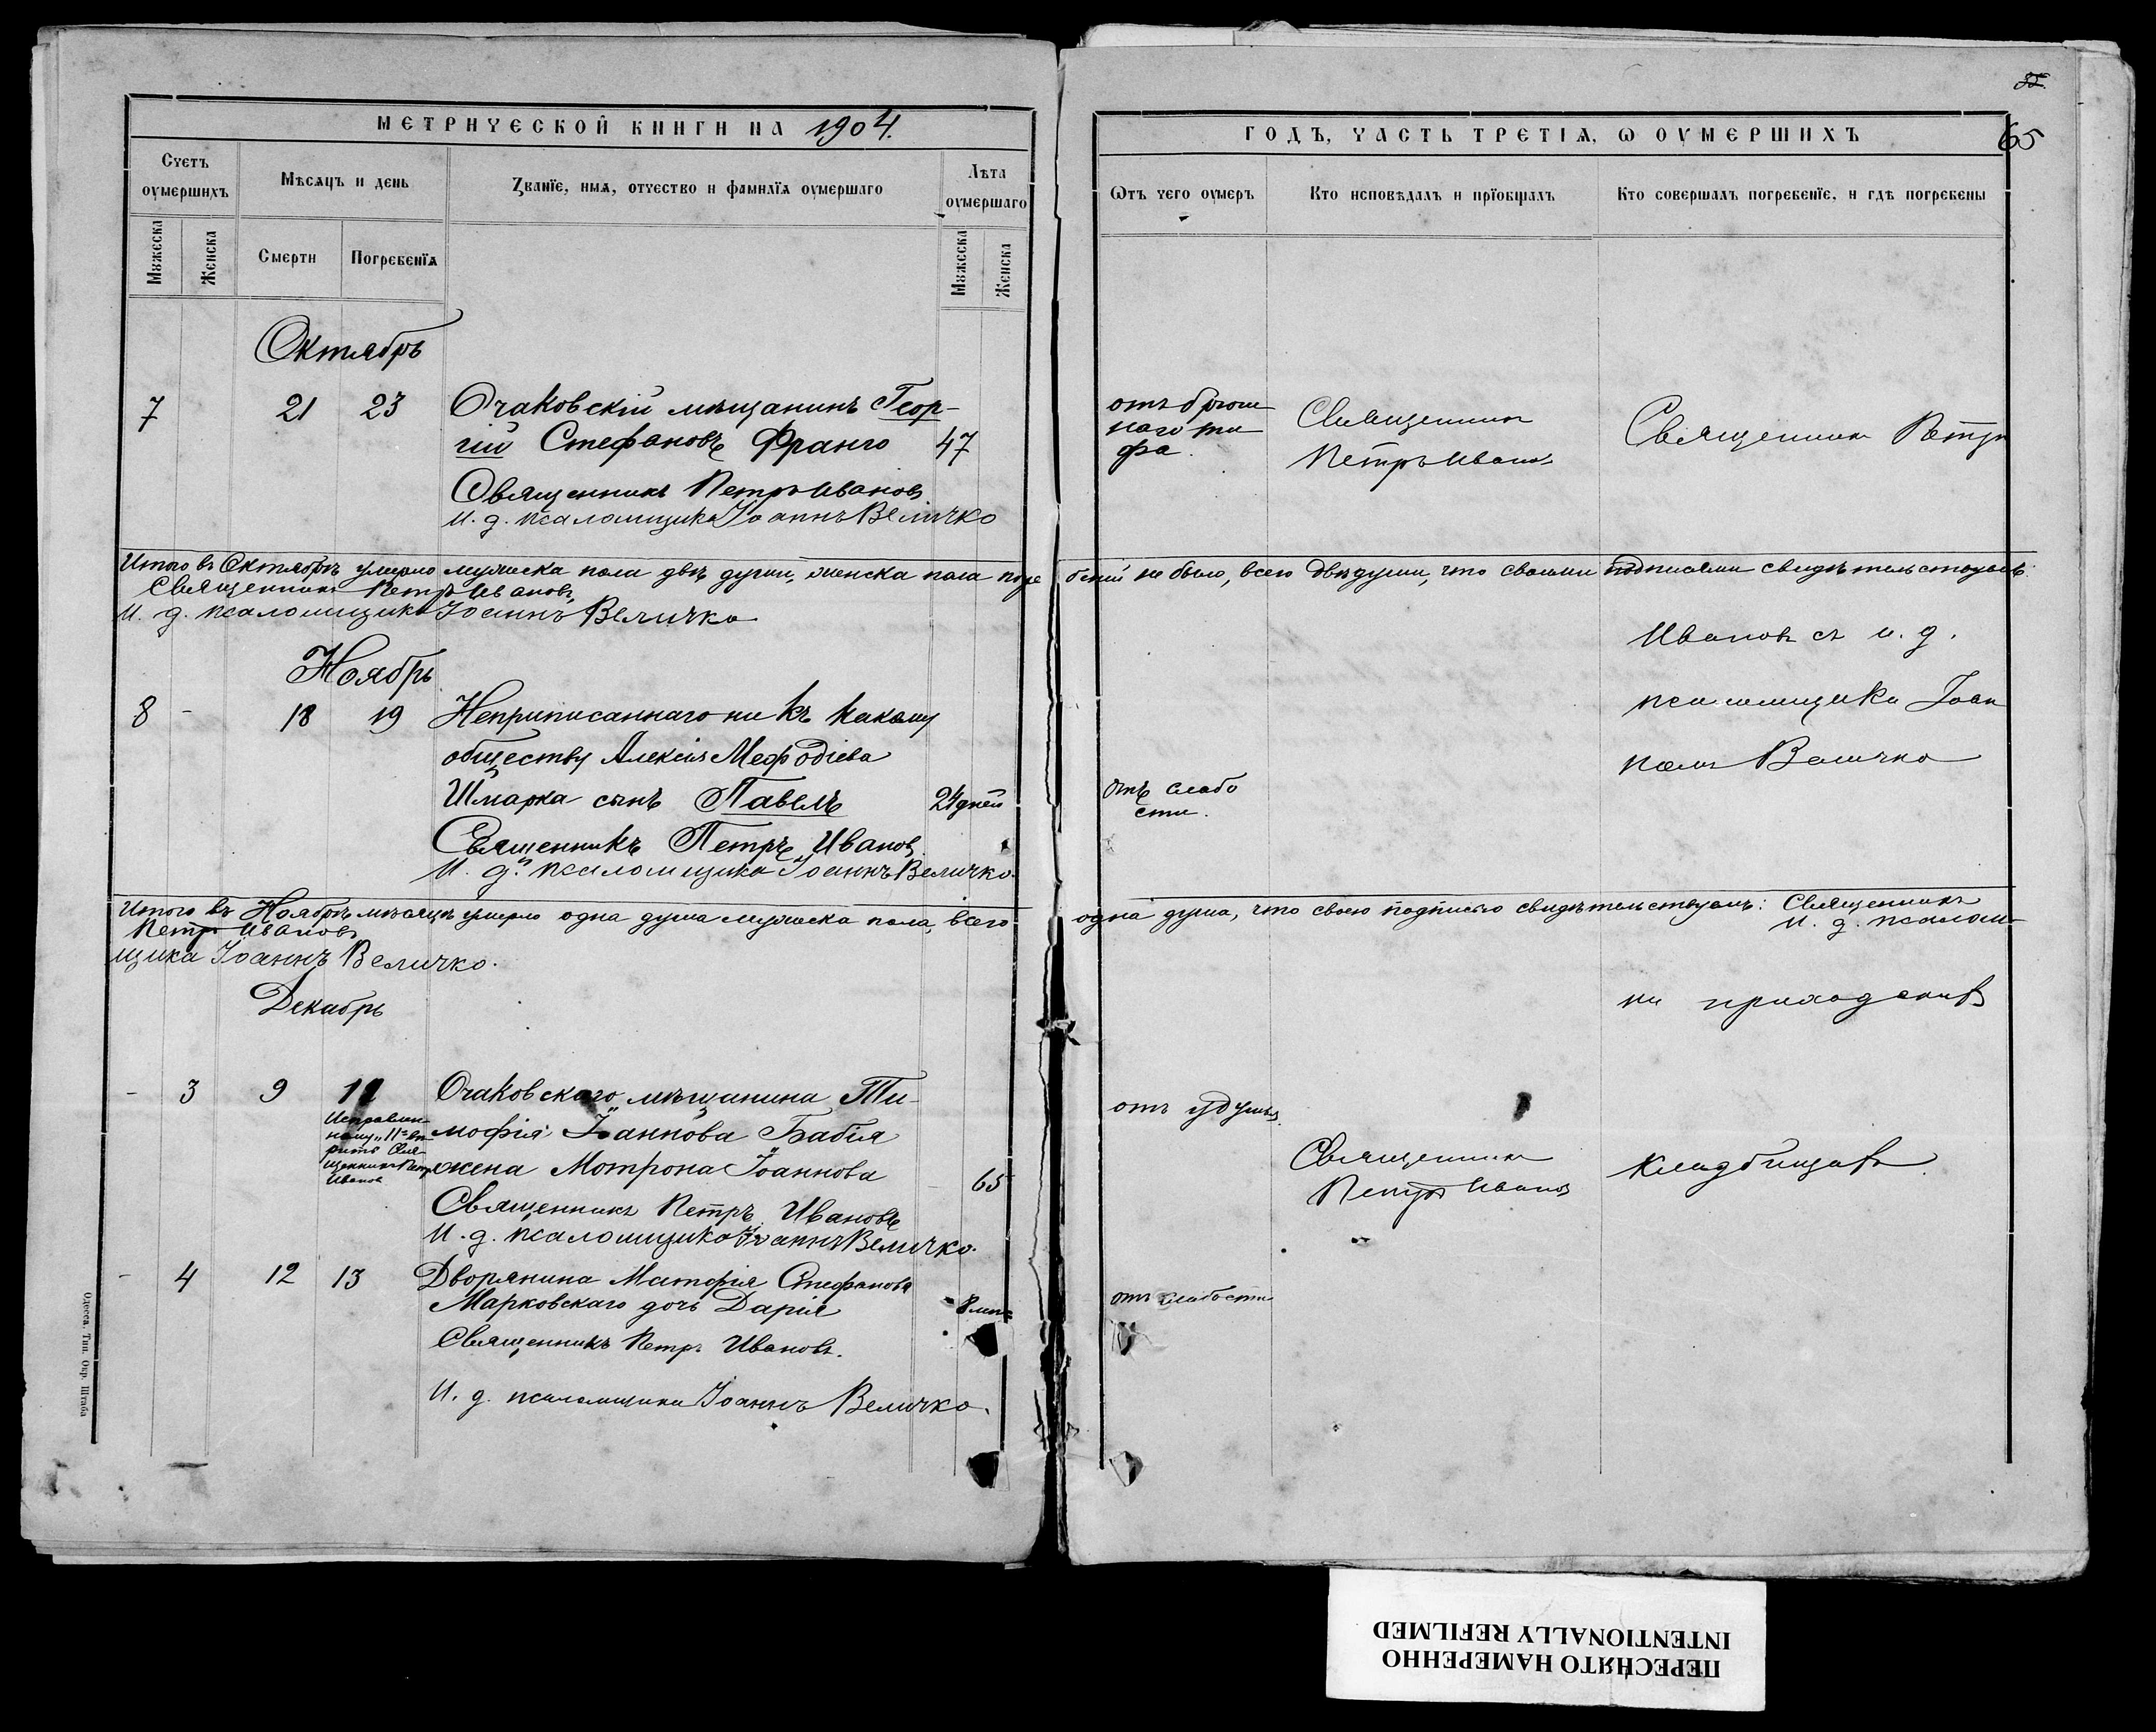 МЕТРИЧЕСКОЙ КНИГИ НА 1904.
Счетъ оумершихъ
Мѣсяцъ и день
Званїе, имя, отчество и фамилїя оумершаго
Лѣта оумершаго
Мужеска
Женска
Смерти
Погребенїя
Мужеска
Женска
Октябрь
7 21 23 Очаковскій мѣщанинъ Геор-
гій Стефановъ Франго 47
Священникъ Петръ Ивановъ
И. д. псаломщика Іоаннъ Величко
Итого въ Октябрѣ умерло мужеска пола двѣ души, женска пола погре
Священникъ Петръ Ивановъ
И. д. псаломщика Іоаннъ Величко
Ноябрь
8 - 18 19 Неприписаннаго ни къ какому
обществу Алексія Мефодіева
Шмарка сынъ Павелъ 24 дней
Священникъ Петръ Ивановъ
И. д. псаломщика Іоаннъ Величко.
Итого въ Ноябрѣ мѣсяцѣ умерло одна душа мужеска пола, всего
Петръ Ивановъ
щика Іоаннъ Величко.
Декабрь
- 3 9 11 Очаковскаго мѣщанина Ти-
мофія Іоаннова Бабія
жена Мотрона Іоаннова 65
Исправлен-
ному "11" вѣ-
рить Свя-
щенникъ Петръ
Ивановъ
Священникъ Петръ Ивановъ
И. д. псаломщика Іоаннъ Величко.
- 4 12 13 Дворянина Матфія Стефанова
Марковскаго дочь Дарія 8 мѣс
Священникъ Петръ Ивановъ.
И. д. псаломщика Іоаннъ Величко.
Одесса. Тип. Окр. Штаба
65
ГОДЪ, ЧАСТЬ ТРЕТІЯ, Ѡ ОУМЕРШИХЪ
Ѿтъ чего оумеръ
Кто исповѣдалъ и прїобщалъ
Кто совершалъ погребенїе, и гдѣ погребены
отъ брюш
наго ти
фа.
Священникъ
Петръ Ивановъ
Священникъ Петръ
беній не было, всего двѣ души, что своими подписями свидѣтельствуемъ:
Ивановъ съ и. д.
псаломщика Іоан
номъ Величко
отъ слабо
сти.
одна душа, что своею подписью свидѣтельствуемъ: Священникъ
И. д. псалом-
на приходскомъ
отъ удушья.
Священникъ
Петръ Ивановъ
кладбищѣ.
отъ слабости
ПЕРЕСНЯТО НАМЕРЕННО
INTENTIONALLY REFILMED